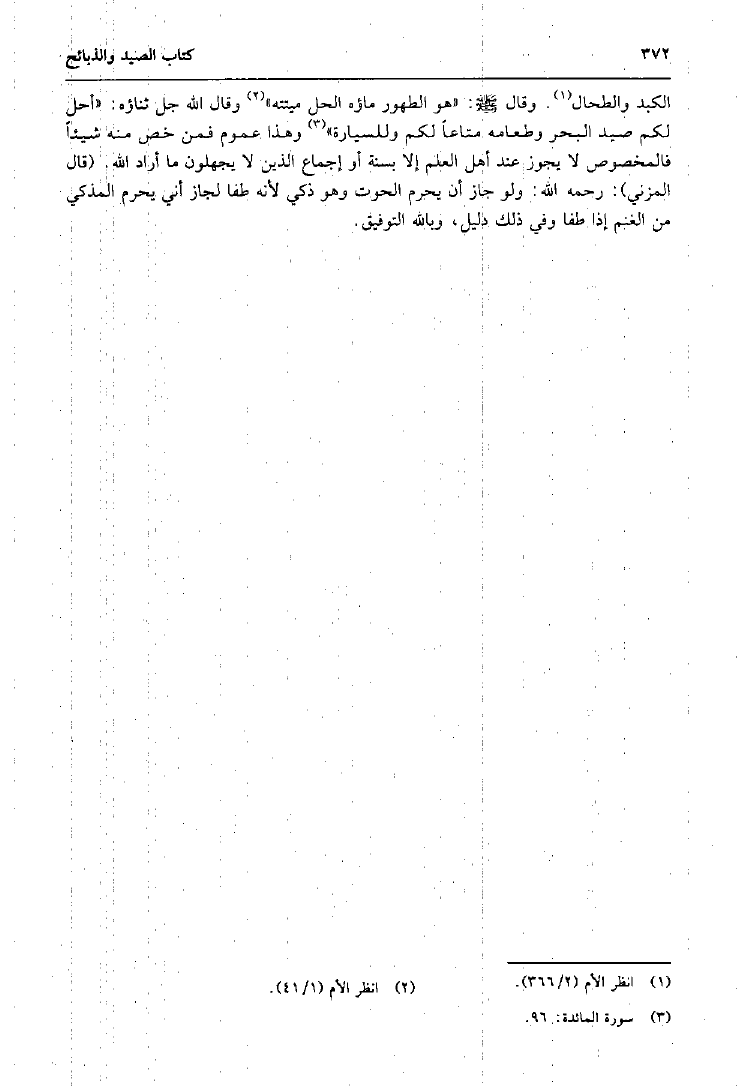 ٣٧٢ كتاب الصيد والذبائح
الكبد والطحال(١). وقال ﷺ: «هو الطهور ماؤه الحل ميتته»(٢) وقال الله جل ثناؤه: «أحل
لكم صيد البحر وطعامه متاعاً لكم وللسيارة»(٣) وهذا عموم فمن خص منه شيئاً
فالمخصوص لا يجوز عند أهل العلم إلا بسنة أو إجماع الذين لا يجهلون ما أراد الله. (قال
المزني): رحمه الله: ولو جاز أن يحرم الحوت وهو ذكي لأنه طفا لجاز أني يحرم المذكي
من الغنم إذا طفا وفي ذلك دليل، وبالله التوفيق.
(١) انظر الأم (٣٦٦/٢).
(٢) انظر الأم (٤١/١).
(٣) سورة المائدة: ٩٦.